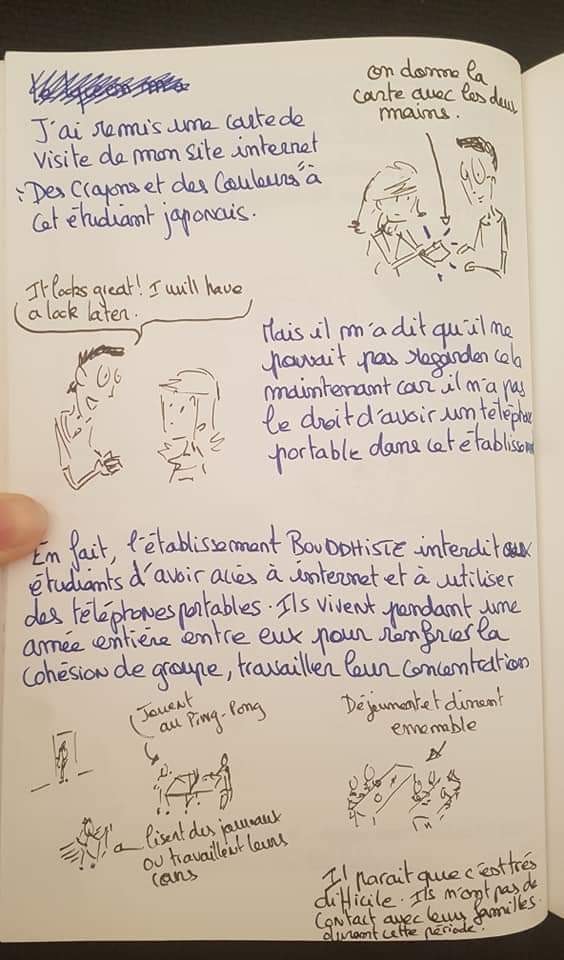 J'ai remis une carte de
visite de mon site internet
"Des Crayons et des Couleurs" à
cet étudiant japonais.
on donne la
carte avec les deux
mains.
It looks great! I will have
a look later.
Mais il m'a dit qu'il ne
pouvait pas regarder cela
maintenant car il n'a pas
le droit d'avoir un téléphone
portable dans cet établissem
En fait, l'établissement BOUDDHISTE interdit aux
étudiants d'avoir accès à internet et à utiliser
des téléphones portables. Ils vivent pendant une
année entière entre eux pour renforcer la
cohésion de groupe, travailler leur concentration
Jouent
au Ping-Pong
Déjeunent et dinent
ensemble
lisent des journaux
ou travaillent leurs
cours
Il parait que c'est très
difficile. Ils n'ont pas de
contact avec leurs familles
durant cette période.